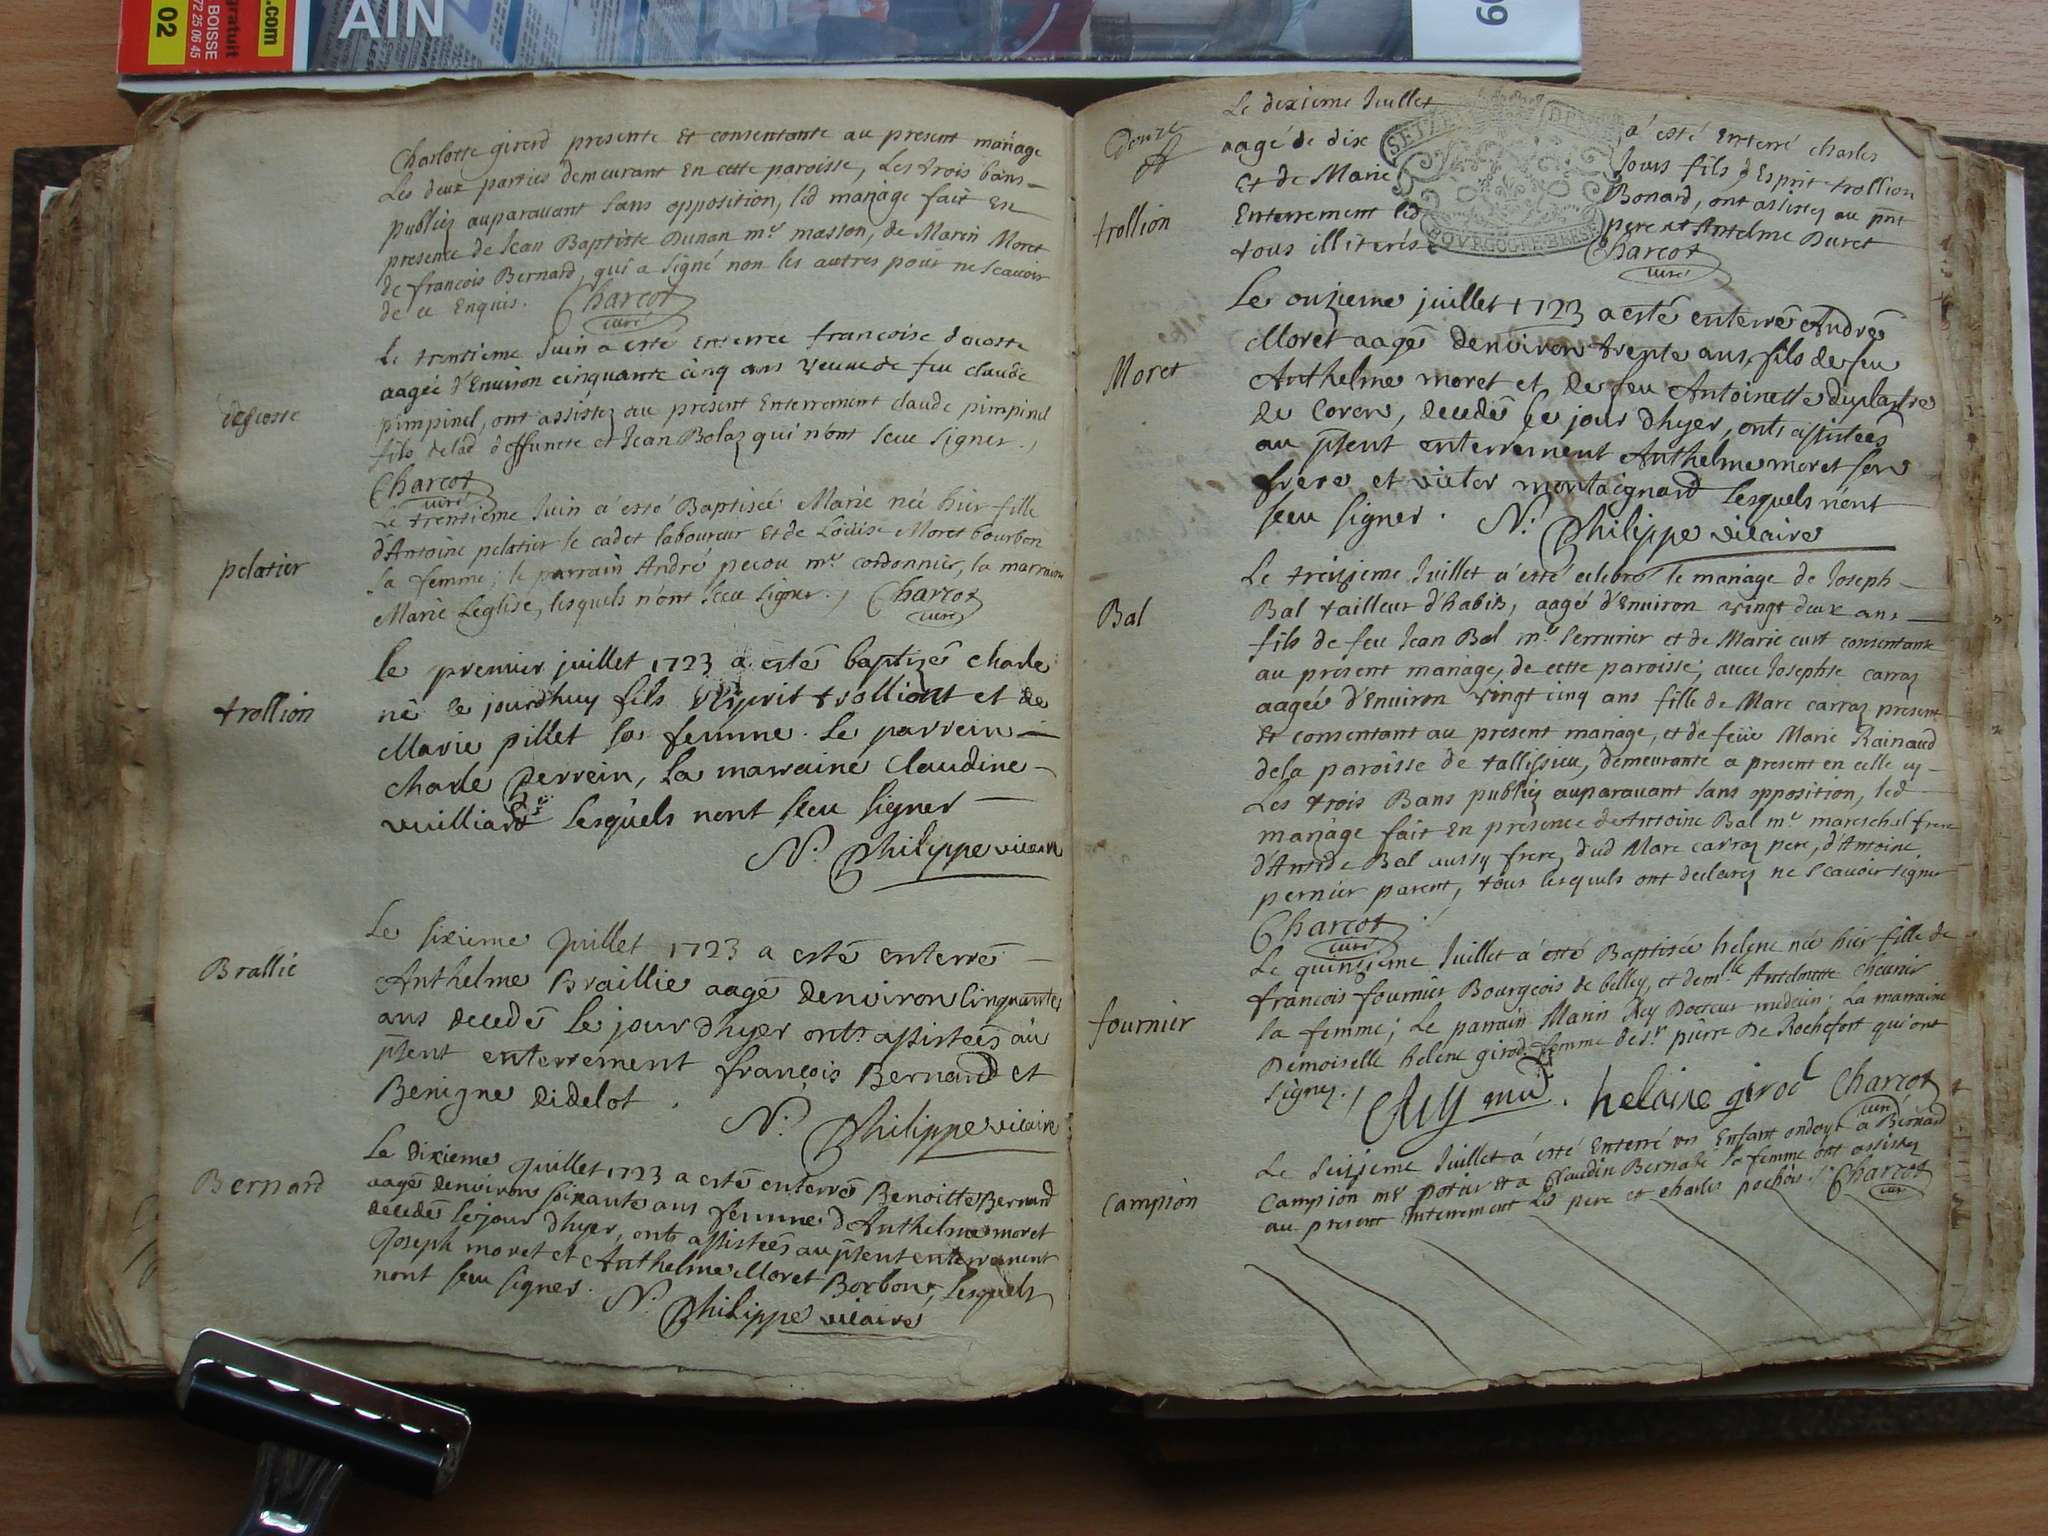 .com
gratuit
BOISSE
72 25 06 45
02
AIN
09
Charlotte girerd presente et consentante au present mariage
Les deux parties demeurant en cette paroisse, Les trois bans
publiez auparauant sans opposition, led mariage fait en
presence de Jean Baptiste Dunan mr masson, de Marin Moret
de francois Bernard, qui a signé non les autres pour ne scauoir
de ce Enquis. Charcot
curé
descoste
Le trentieme Juin a esté enterrée francoise decoste
aagée d'Environ cinquante cinq ans veuue de feu claude
pimpinel, ont assistez au present Enterrement claude pimpinel
fils de lad deffuncte et Jean Bolaz qui n'ont sceu signer.
Charcot
curé
pelatier
Le trentieme Juin a esté Baptisée Marie née hier fille
d'Antoine pelatier le cadet laboureur et de Loüise Moret bourbon
sa femme; le parrain André pecou mr cordonnier, la marraine
Marie Leglise, lesquels n'ont sceu signer. Charcot
curé
trollion
le premier juillet 1723 a esté baptizé charle
né le jourdhuy fils d'Esprit trolliont et de
Marie pillet sa femme. Le parrein
charle perrein, La marraine Claudine
vuilliard lesquels nont sceu signer
N. Philippe vicaire
Brallie
Le sixieme Juillet 1723 a esté enterré
Anthelme Braillie aagé denviron Cinquante
ans decedé le jour dhyer onts assistées au
pñent enterrement françois Bernard et
Benigne didelot.
N. Philippe vicaire
Bernard
Le dixieme Juillet 1723 a esté enterré Benoitte Bernard
aagé denviron soixante ans femme d'Anthelme moret
decedée le jour dhyer, ont assistées au pñent enterrement
Joseph moret et Anthelme Moret Borbon, Lesquels
nont sceu signer.
N. Philippe vicaire
Douze
trollion
Le dixieme Juillet a' esté Enterré charles
aagé de dix Jours fils d'Esprit trollion
Et de Marie Bonard, ont assistez au pnt
Enterrement led pere et Antelme Duret
tous illiterés Charcot
curé
SEIZE DENIERS
BOURGOGNE-BRESSE
Moret
Le onzieme juillet 1723 a esté enterré André
Moret aagé denviron trente ans, fils de feu
Anthelme moret et de feu Antoinette duplastre
de Coron, decedé le jour dhyer, onts assistées
au pñent enterrement Anthelme moret son
frere et victor montaignard lesquels nont
sceu signer. N. Philippe vicaire
Bal
Le treizieme Juillet a' esté celebré le mariage de Joseph
Bal tailleur d'habits, aagé d'Environ vingt deux ans
fils de feu Jean Bal mr serrurier et de Marie curt consentante
au present mariage, de cette paroisse; auec Josephte carraz
aagée d'Environ vingt cinq ans fille de Marc carraz present
Et consentant au present mariage, et de feüe Marie Rainaud
dela paroisse de tallissieu, demeurante a present en celle cy
Les trois Bans publiez auparauant sans opposition, led
mariage fait En presence de Antoine Bal mr mareschal frere
d'Antide Bal aussy frere, dud Marc carraz pere, d'Antoine
pernier parent, tous lesquels ont declarez ne scauoir signer
Charcot
curé
fournier
Le quinzieme Juillet a' esté Baptisée helene née hier fille de
francois fournier Bourgeois de belley, et demlle Antelmette cheunier
sa femme; Le parrain Marin Rey Docteur medecin. La marraine
Demoiselle helene girod femme de sr. pierre De Rochefort qui ont
signez. Rey md. helaine girod Charcot
curé
campion
Le seizieme Juillet a' esté Enterré un Enfant ondoyé a Bernard
Campion mr potier et a Claudine Bernard sa femme ont assistez
au present Enterrement Led pere et charles pochois. Charcot
curé